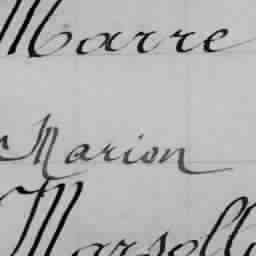 Marre
Marion
Marsoll